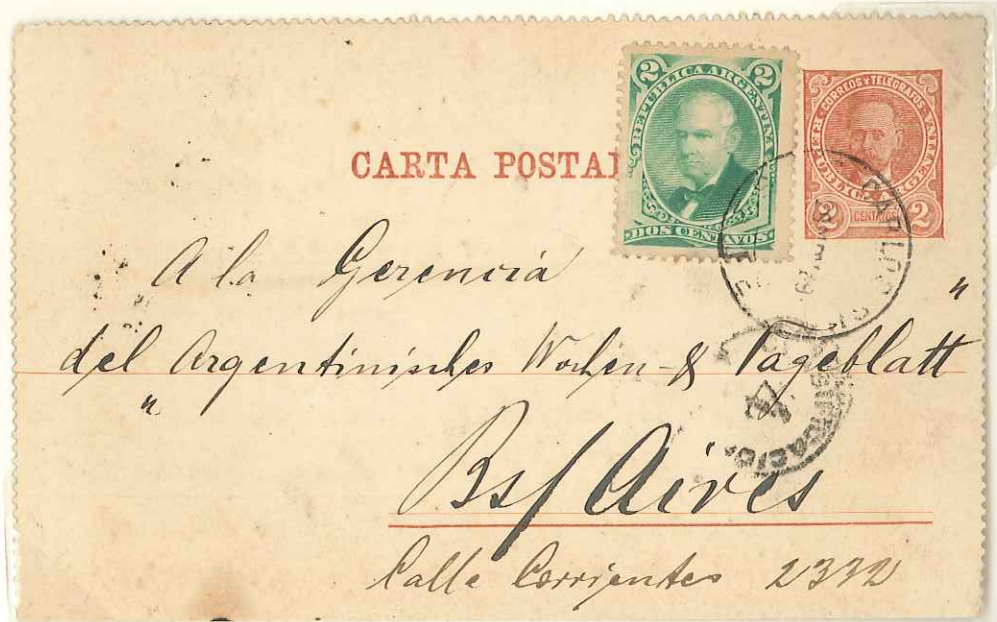 CARTA POSTAL
2 REPUBLICA ARGENTINA 2
DOS CENTAVOS
CORREOS Y TELEGRAFOS
2 CENTAVOS 2
A la Gerencia
"
del Argentinisches Wochen- & Tageblatt
"
Bs/Aires
Calle Corrientes 2332